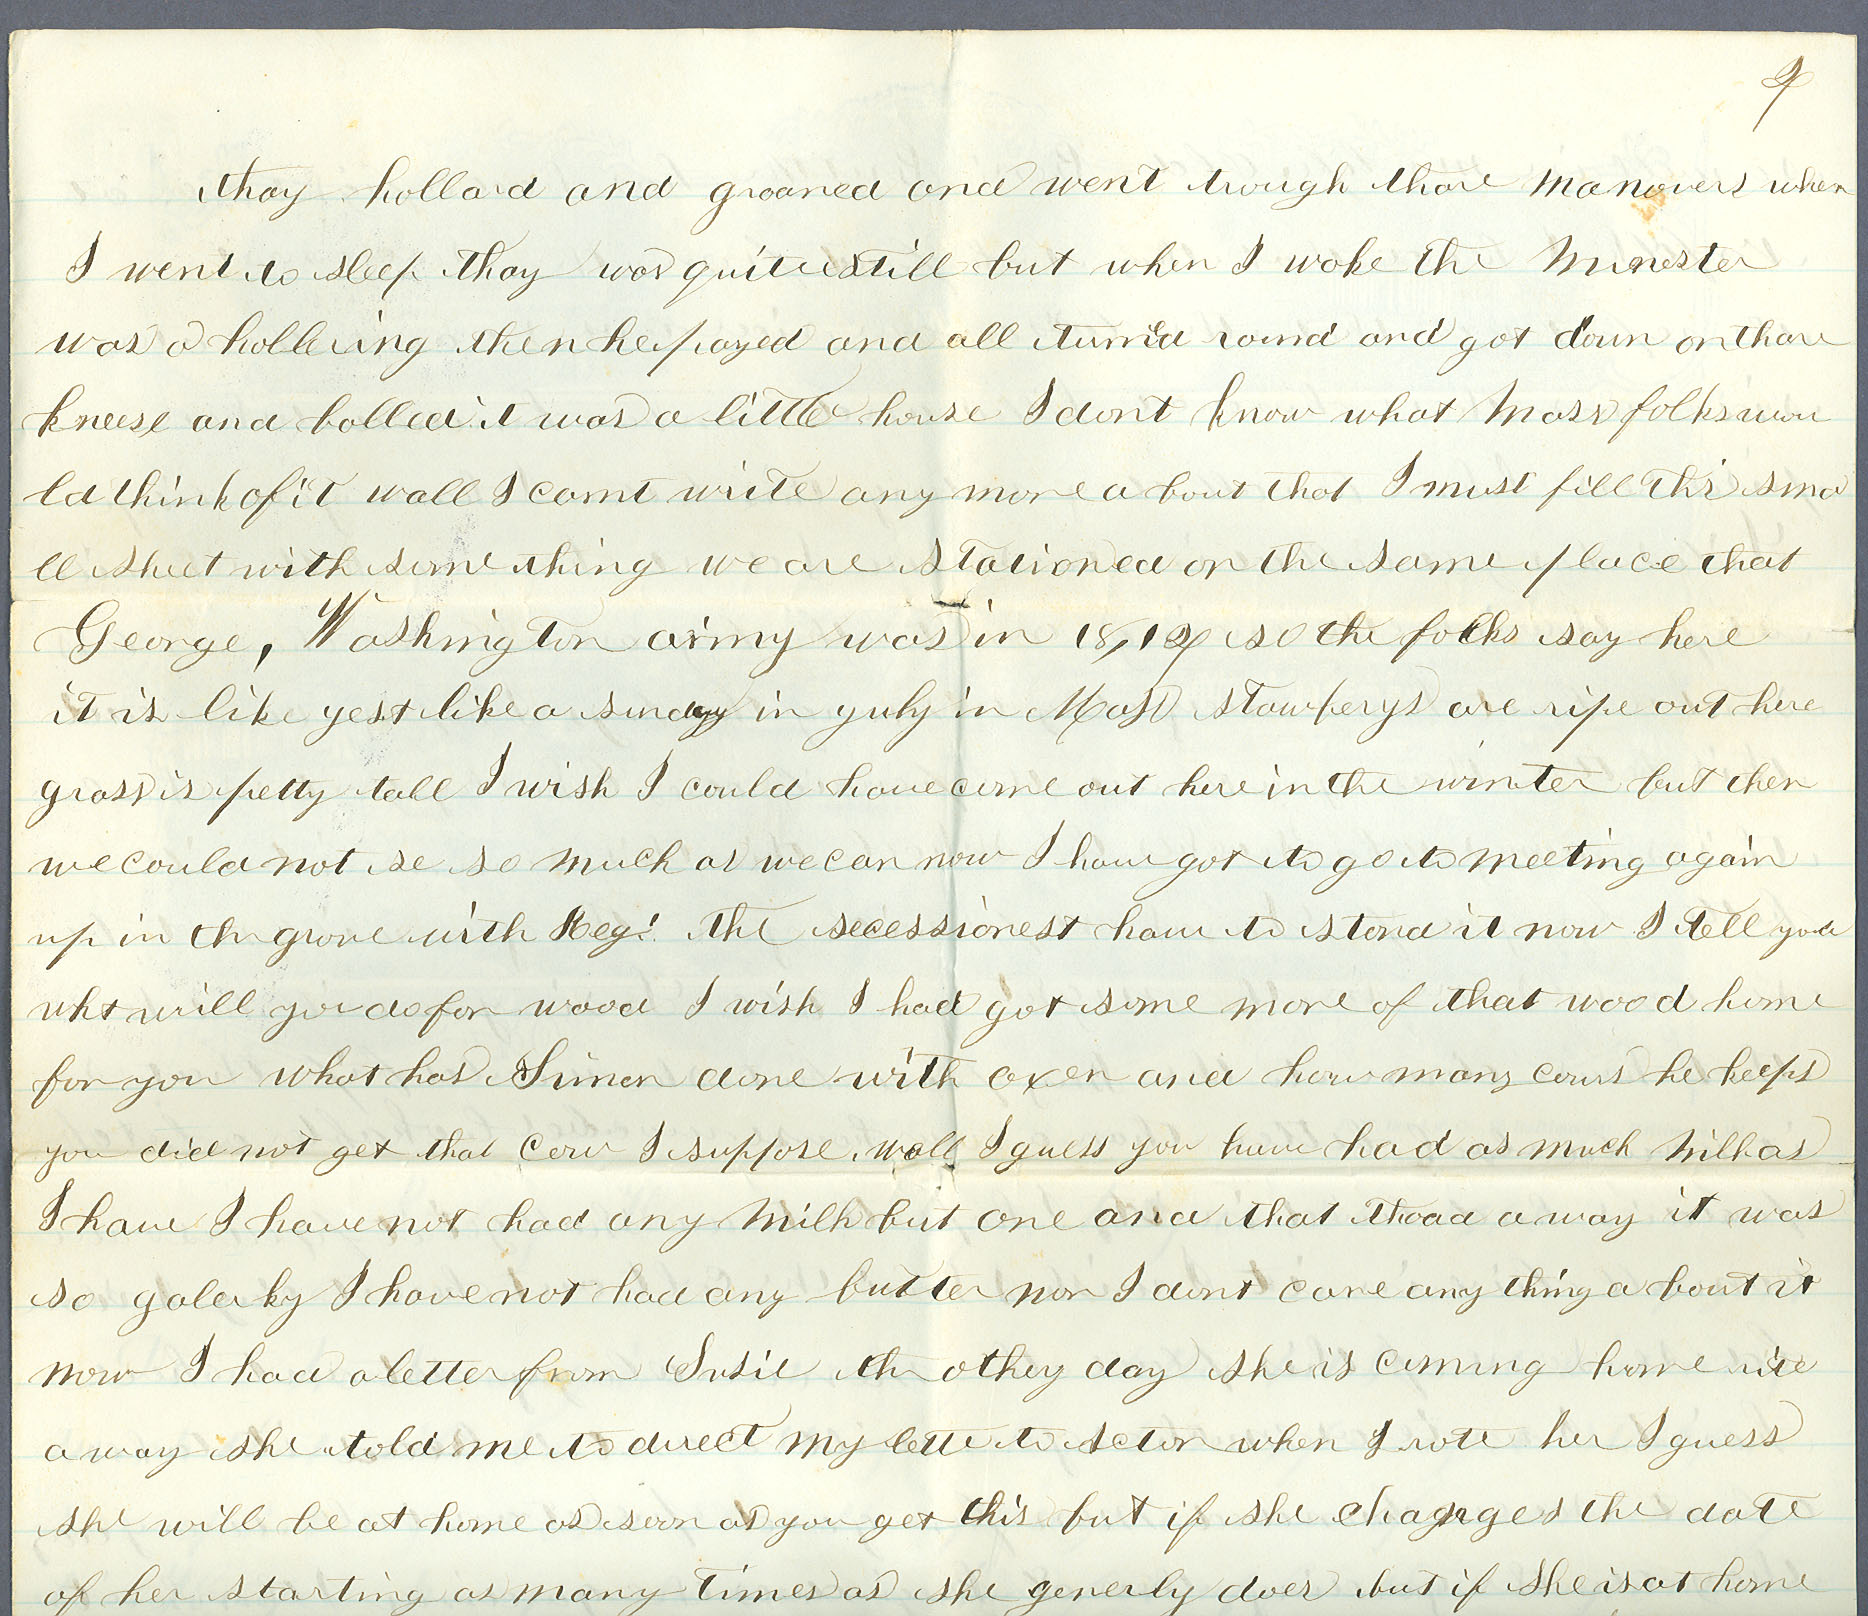 9
thay hollard and groaned and went trough thare manovers when
I went to sleep thay was quite still but when I woke the Minester
was a hollering then he prayed and all turn'd round and got down on thare
kneese and holled it was a little house I dont know what Mass folks wou
ld think of it wall I carnt write any more a bout that I must fill this sma
ll sheet with some thing we are stationed on the same place that
George, Washington army was in 18,12 so the folks say here
it is like yest like a sunday in july in Mass stawberys are ripe out here
grass is petty tall I wish I could have come out here in the winter but then
we could not se so much as we can now I have got to go to meeting again
up in the grove with Reg! the secessionest have to stand it now I tell you
wht will you do for wood I wish I had got some more of that wood home
for you what has Simon done with oxen and how many cows he keeps
you did not get that cow I suppose wall I guess you have had as much milk as
I have I have not had any milk but one and that thoad a way it was
so galerky I have not had any butter nor I dont care any thing a bout it
now I had a letter from Susie the othey day she is coming home rite
a way she told me to direct my lette to Acton when I rote her I guess
she will be at home as soon as you get this but if she changes the date
of her starting as many times as she generly does but if she is at home